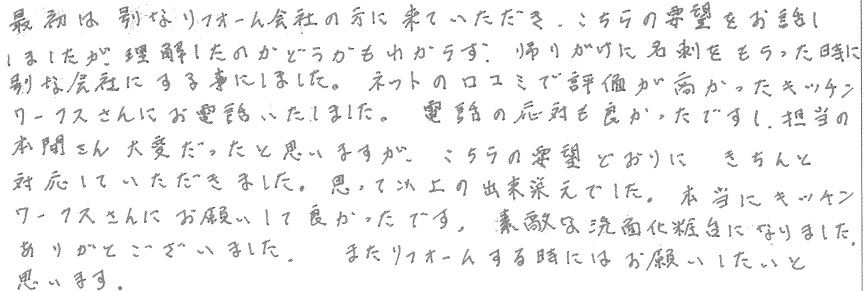 最初は 別なリフォーム会社の方に来ていただき、こちらの要望をお話し
しましたが、理解したのかどうかもわからず、帰りがけに名刺をもらった時に
別な会社にする事にしました。ネットの口コミで評価が高かったキッチン
ワークスさんにお電話いたしました。電話の応対も良かったですし、担当の
本間さん 大変だったと思いますが、こちらの要望どおりに きちんと
対応していただきました。思って以上の出来栄えでした。本当にキッチン
ワークスさんにお願いして良かったです。素敵な洗面化粧台になりました。
ありがとございました。 またリフォームする時にはお願いしたいと
思います。